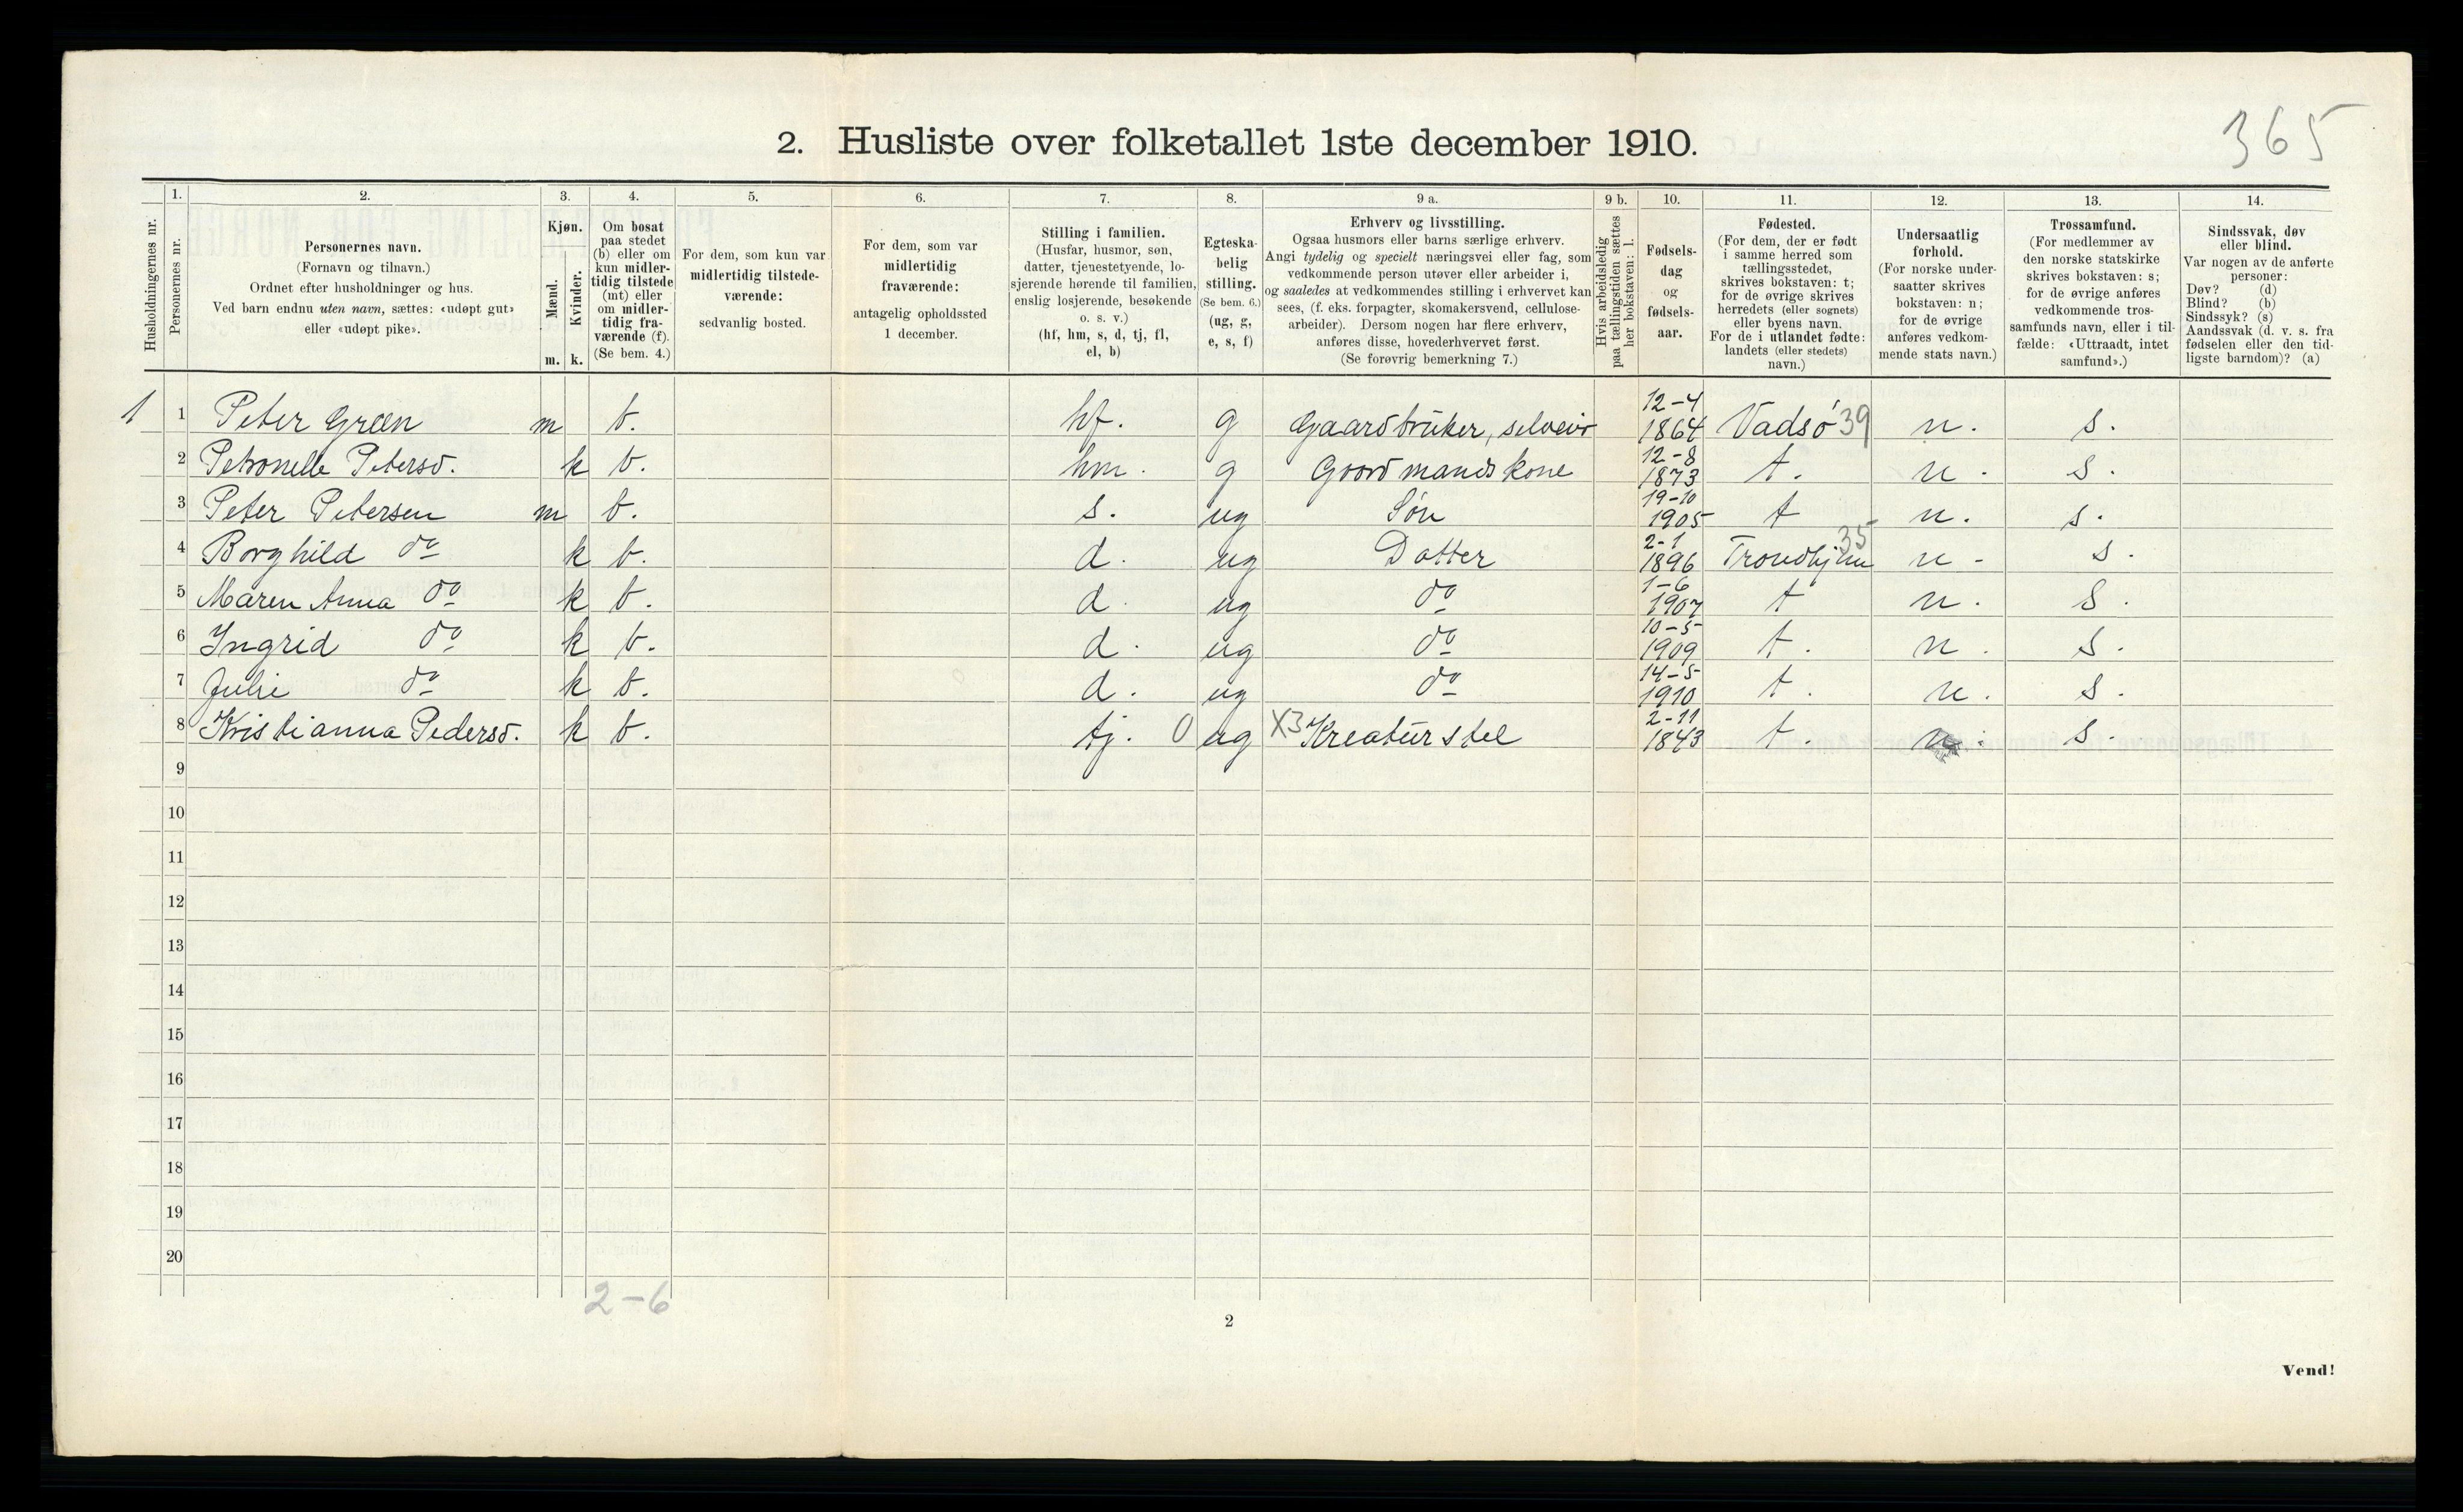 365
2. Husliste over folketallet 1ste december 1910.
Husholdningernes nr.
1.
Personernes nr.
2.
Personernes navn.
(Fornavn og tilnavn.)
Ordnet efter husholdninger og hus.
Ved barn endnu uten navn, sættes: «udøpt gut»
eller «udøpt pike».
3.
Kjøn.
Mænd.
Kvinder.
m. k.
4.
Om bosat
paa stedet
(b) eller om
kun midler-
tidig tilstede
(mt) eller
om midler-
tidig fra-
værende (f).
(Se bem. 4.)
5.
For dem, som kun var
midlertidig tilstede-
værende:
sedvanlig bosted.
6.
For dem, som var
midlertidig
fraværende:
antagelig opholdssted
1 december.
7.
Stilling i familien.
(Husfar, husmor, søn,
datter, tjenestetyende, lo-
sjerende hørende til familien,
enslig losjerende, besøkende
o. s. v.)
(hf, hm, s, d, tj, fl,
el, b)
8.
Egteska-
belig
stilling.
(Se bem. 6.)
(ug, g,
e, s, f)
9 a.
Erhverv og livsstilling.
Ogsaa husmors eller barns særlige erhverv.
Angi tydelig og specielt næringsvei eller fag, som
vedkommende person utøver eller arbeider i,
og saaledes at vedkommendes stilling i erhvervet kan
sees, (f. eks. forpagter, skomakersvend, cellulose-
arbeider). Dersom nogen har flere erhverv,
anføres disse, hovederhvervet først.
(Se forøvrig bemerkning 7.)
9 b.
Hvis arbeidsledig
paa tællingstiden sættes
her bokstaven: l.
10.
Fødsels-
dag
og
fødsels-
aar.
11.
Fødested.
(For dem, der er født
i samme herred som
tællingsstedet,
skrives bokstaven: t;
for de øvrige skrives
herredets (eller sognets)
eller byens navn.
For de i utlandet fødte:
landets (eller stedets)
navn.)
12.
Undersaatlig
forhold.
(For norske under-
saatter skrives
bokstaven: n;
for de øvrige
anføres vedkom-
mende stats navn.)
13.
Trossamfund.
(For medlemmer av
den norske statskirke
skrives bokstaven: s;
for de øvrige anføres
vedkommende tros-
samfunds navn, eller i til-
fælde: «Uttraadt, intet
samfund».)
14.
Sindssvak, døv
eller blind.
Var nogen av de anførte
personer:
Døv? (d)
Blind? (b)
Sindssyk? (s)
Aandssvak (d. v. s. fra
fødselen eller den tid-
ligste barndom)? (a)
1 1 Peter Green m b. hf. g Gaardbruker, selveier 12-4 1864 Vadsø 39 n. s.
2 Petronelle Petersd. k b. hm. g Gaardmandskone 12-8 1873 t. n. s.
3 Peter Petersen m b. s. ug Søn 19-10 1905 t n. s.
4 Borghild do k b. d. ug Datter 2-1 1896 Trondhjem 35 n - s.
5 Maren Anna do k b. d. ug do 1-6 1907 t n. s.
6 Ingrid do k b. d. ug do 10-5 1909 t. n. s.
7 Julie do k b. d. ug do 14-5 1910 t. n. s.
8 Kristianna Pedersd. k b. tj. 0 ug X3 Kreaturstel 2-11 1843 t. n. s.
9
10
11
12
13
14
15
16
17
18
19
20
2-6
2
Vend!